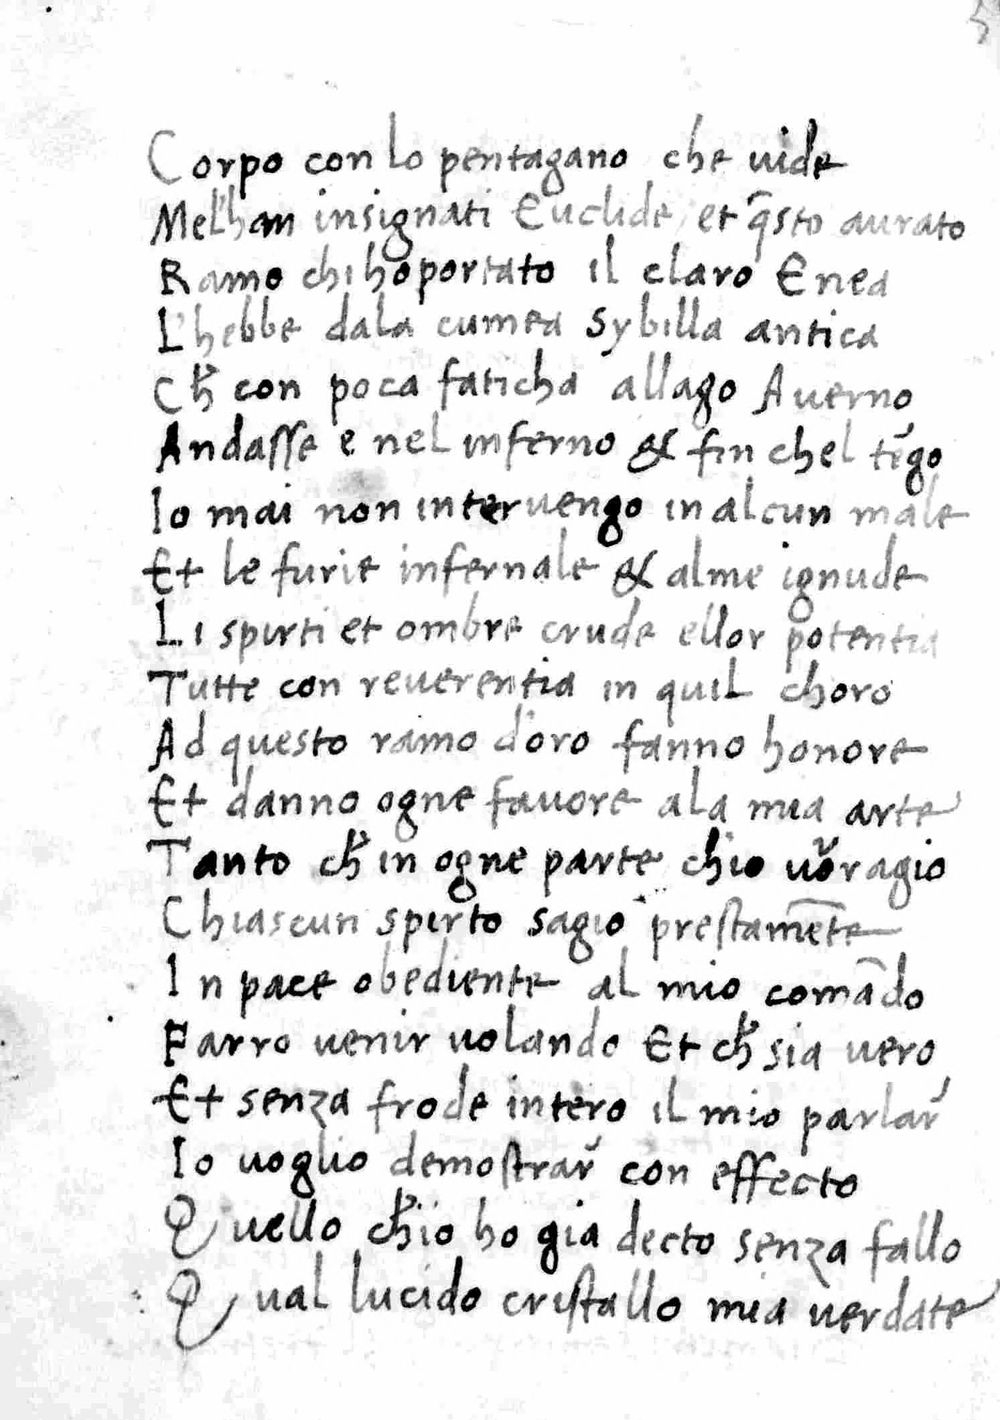 Corpo con lo pentagano che uide
Mel'han insignati Euclide et q̄sto aurato
Ramo chi ho portato il claro Enea
L'hebbe dala cumea Sybilla antica
Ch̄ con poca faticha allago Auerno
Andasse e nel inferno & fin chel tēgo
Io mai non interuengo in alcun male
Et le furie infernale & alme ignude
Li spirti et ombre crude ellor potentia
Tutte con reuerentia in quil choro
Ad questo ramo d'oro fanno honore
Et danno ogne fauore ala mia arte
Tanto ch̄ in ogne parte chio vor̄ragio
Chiascun spirto sagio prestamēte
In pace obediente al mio comādo
Farro uenir uolando Et ch̄ sia uero
Et senza frode intero il mio parlar̄
Io uoglio demostrar̄ con effecto
Quello ch̄ io ho gia decto senza fallo
Qual lucido cristallo mia uerdate